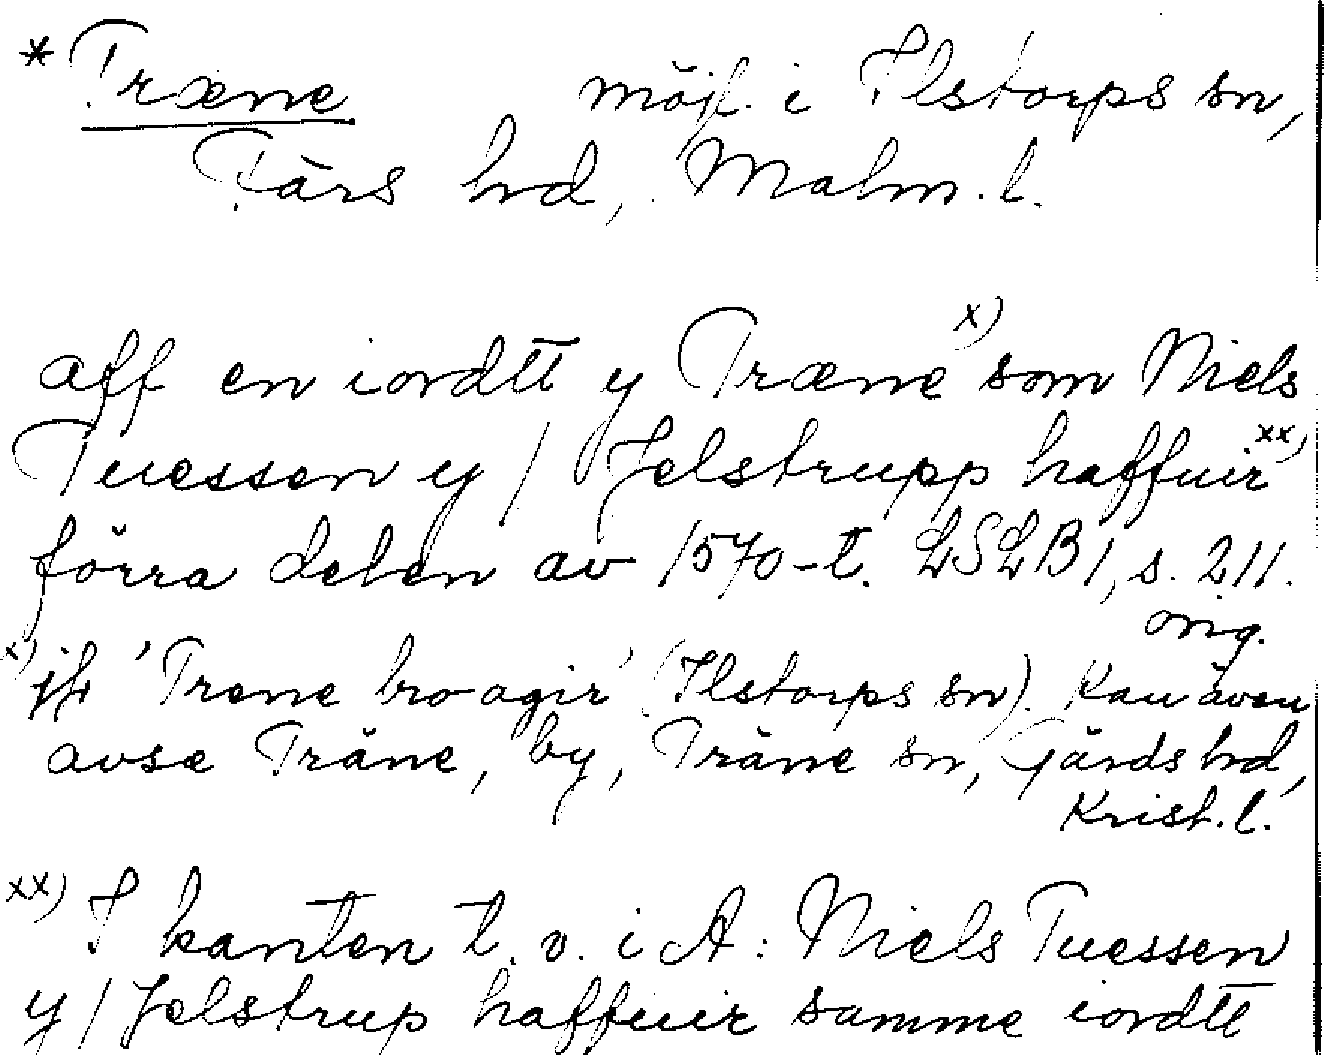 * Træne möjl. i Ilstorps sn,
Färs hd, Malm. l.
aff en iordtt y Træne x) som Niels
Tuessen y / Jelstrupp haffuir xx)
förra delen av 1570-t. LSLB 1, s. 211.
orig.
x) jfr 'Trene bro agir' (Ilstorps sn). Kan även
avse Träne, by, Träne sn, Gärds hd,
Krist. l.
xx) I kanten t. v. i A: Niels Tuessen
y / Jelstrup haffuir samme iordtt